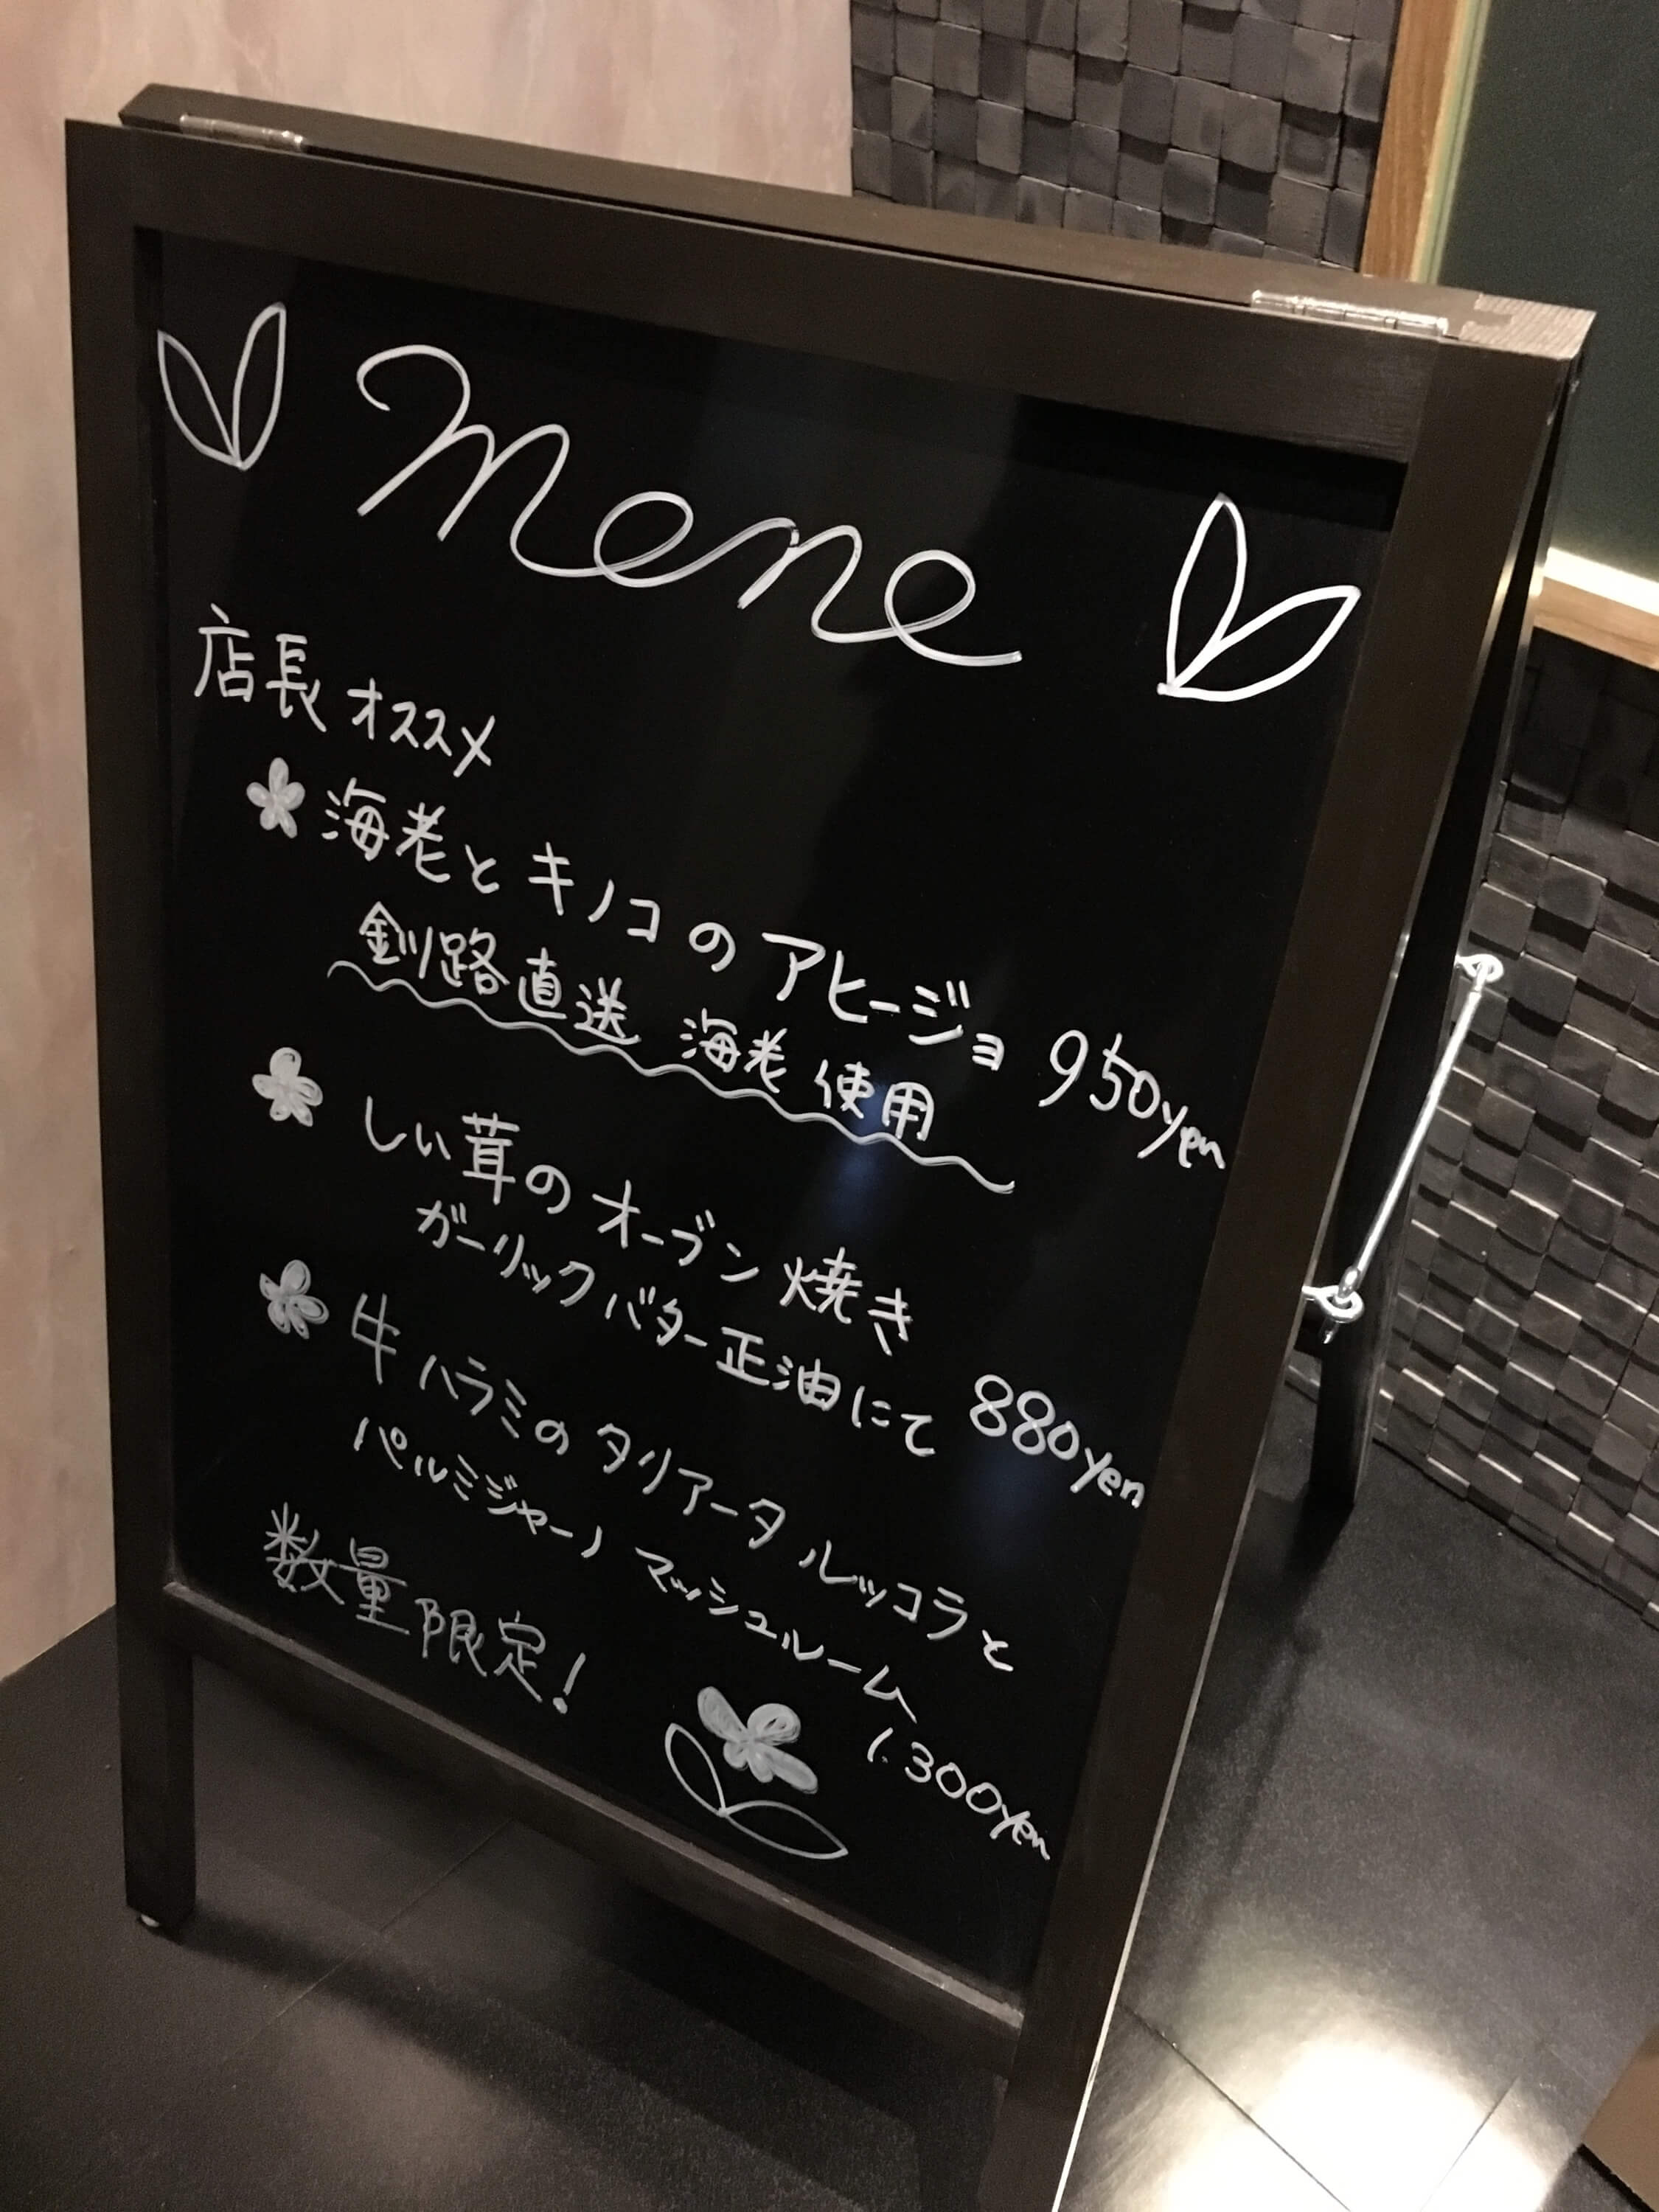 Mene
店長オススメ
海老とキノコのアヒージョ 950yen
釧路直送 海老使用
しい茸のオーブン焼き
ガーリックバター正油にて 880yen
牛ハラミのタリアータ ルッコラと
パルミジャーノ マッシュルーム
1.300yen
数量限定!